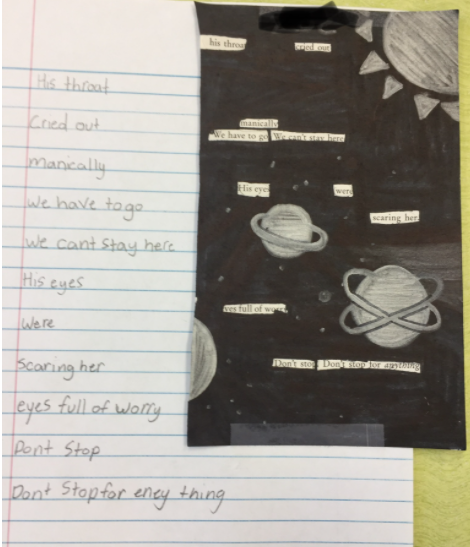 His throat
Cried out
manically
we have to go
we cant stay here
His eyes
were
Scaring her
eyes full of worry
Dont Stop
Dont Stop for eney thing
his throat
cried out
manically
We have to go We can't stay here
His eyes
were
scaring her.
yes full of worry
Don't stop. Don't stop for anything